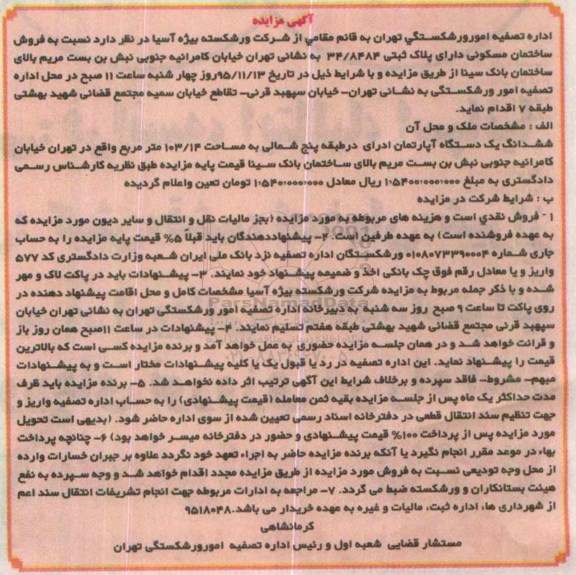 آگهی مزایده
اداره تصفیه امورورشکستگی تهران به قائم مقامی از شرکت ورشکسته بیژه آسیا در نظر دارد نسبت به فروش
ساختمان مسکونی دارای پلاک ثبتی ۳۴/۸۴۸۴ به نشانی تهران خیابان کامرانیه جنوبی نبش بن بست مریم بالای
ساختمان بانک سینا از طریق مزایده و با شرایط ذیل در تاریخ ۹۵/۱۱/۱۳روز چهار شنبه ساعت ۱۱ صبح در محل اداره
تصفیه امور ورشکستگی به نشانی تهران- خیابان سپهبد قرنی- تقاطع خیابان سمیه مجتمع قضائی شهید بهشتی
طبقه ۷ اقدام نماید.
الف : مشخصات ملک و محل آن
ششدانگ یک دستگاه آپارتمان ادرای درطبقه پنج شمالی به مساحت ۱۰۳/۱۴ متر مربع واقع در تهران خیابان
کامرانیه جنوبی نبش بن بست مریم بالای ساختمان بانک سینا قیمت پایه مزایده طبق نظریه کارشناس رسمی
دادگستری به مبلغ ۱۰/۵۴۰۰/۰۰۰/۰۰۰ ریال معادل ۱/۵۴۰/۰۰۰/۰۰۰ تومان تعین واعلام گردیده
ب : شرایط شرکت در مزایده
۱- فروش نقدی است و هزینه های مربوطه به مورد مزایده (بجز مالیات نقل و انتقال و سایر دیون مورد مزایده که
به عهده فروشنده است) به عهده طرفین است. ۲- پیشنهاددهندگان باید قبلاً ۵% قیمت پایه مزایده را به حساب
جاری شماره ۰۱۰۸۰۷۳۳۹۰۰۰۴ ورشکستگان اداره تصفیه نزد بانک ملی ایران شعبه وزارت دادگستری کد ۵۷۷
واریز و یا معادل رقم فوق چک بانکی اخذ و ضمیمه پیشنهاد خود نمایند. ۳- پیشنهادات باید در پاکت لاک و مهر
شده و با ذکر جمله مربوط به مزایده شرکت ورشکسته بیژه آسیا مشخصات کامل و محل اقامت پیشنهاد دهنده در
روی پاکت تا ساعت ۹ صبح روز سه شنبه به دبیرخانه اداره تصفیه امور ورشکستگی تهران به نشانی تهران خیابان
سپهبد قرنی مجتمع قضائی شهید بهشتی طبقه هفتم تسلیم نمایند. ۴- پیشنهادات در ساعت ۱۱صبح همان روز باز
و قرائت خواهد شد و در همان جلسه مزایده حضوری به عمل خواهد آمد و برنده مزایده کسی است که بالاترین
قیمت را پیشنهاد نماید. این اداره تصفیه در رد یا قبول یک یا کلیه پیشنهادات مختار است و به پیشنهادات
مبهم- مشروط- فاقد سپرده و برخلاف شرایط این آگهی ترتیب اثر داده نخواهد شد. ۵- برنده مزایده باید ظرف
مدت حداکثر یک ماه پس از جلسه مزایده بقیه ثمن معامله (قیمت پیشنهادی) را به حساب اداره تصفیه واریز و
جهت تنظیم سند انتقال قطعی در دفترخانه اسناد رسمی تعیین شده از سوی اداره حاضر شود. (بدیهی است تحویل
مورد مزایده پس از پرداخت ۱۰۰% قیمت پیشنهادی و حضور در دفترخانه میسر خواهد بود) ۶- چنانچه پرداخت
بهاء در موعد مقرر انجام نگیرد یا آنکه برنده مزایده حاضر به اجراء تعهد خود نگردد علاوه بر جبران خسارات وارده
از محل وجه تودیعی نسبت به فروش مورد مزایده از طریق مزایده مجدد اقدام خواهد شد و وجه سپرده به نفع
هیئت بستانکاران و ورشکسته ضبط می گردد. ۷- مراجعه به ادارات مربوطه جهت انجام تشریفات انتقال سند اعم
از شهرداری ها، اداره ثبت، مالیات و غیره به عهده خریدار می باشد.۹۵۱۸۰۴۸
کرمانشاهی
مستشار قضایی شعبه اول و رئیس اداره تصفیه امورورشکستگی تهران
ParsNamadData